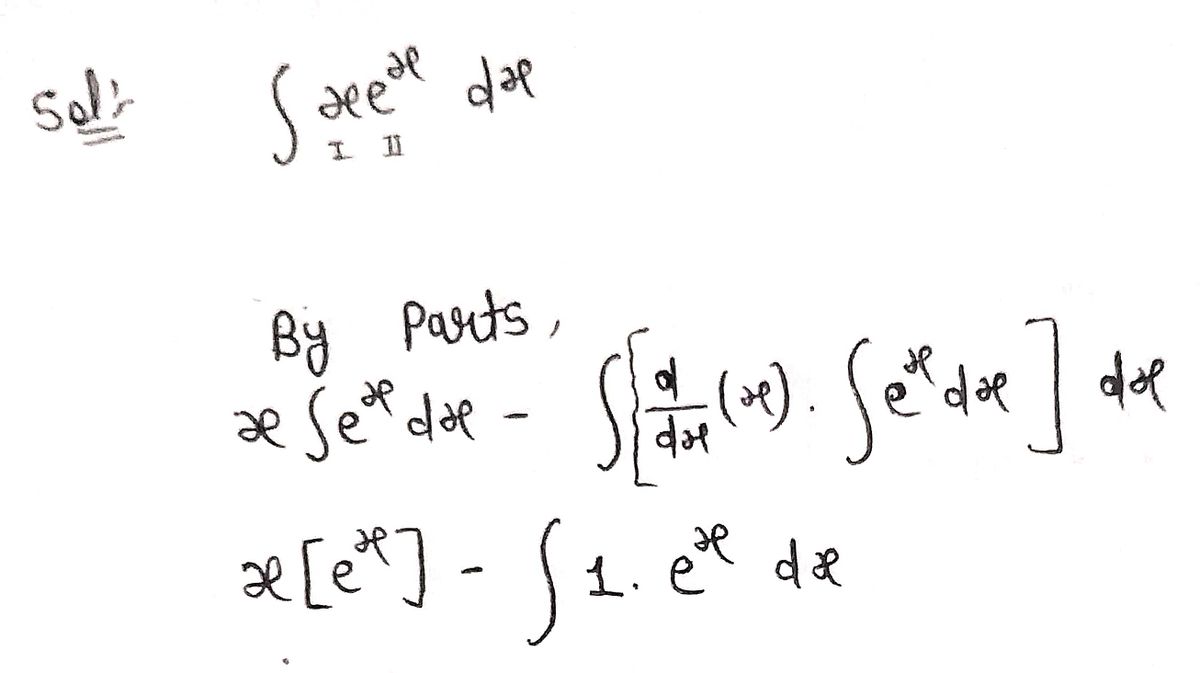 Sol:- ∫ x e^x dx
I II
By Parts,
x ∫ e^x dx - ∫ [ d/dx (x) . ∫ e^x dx ] dx
x [e^x] - ∫ 1. e^x dx